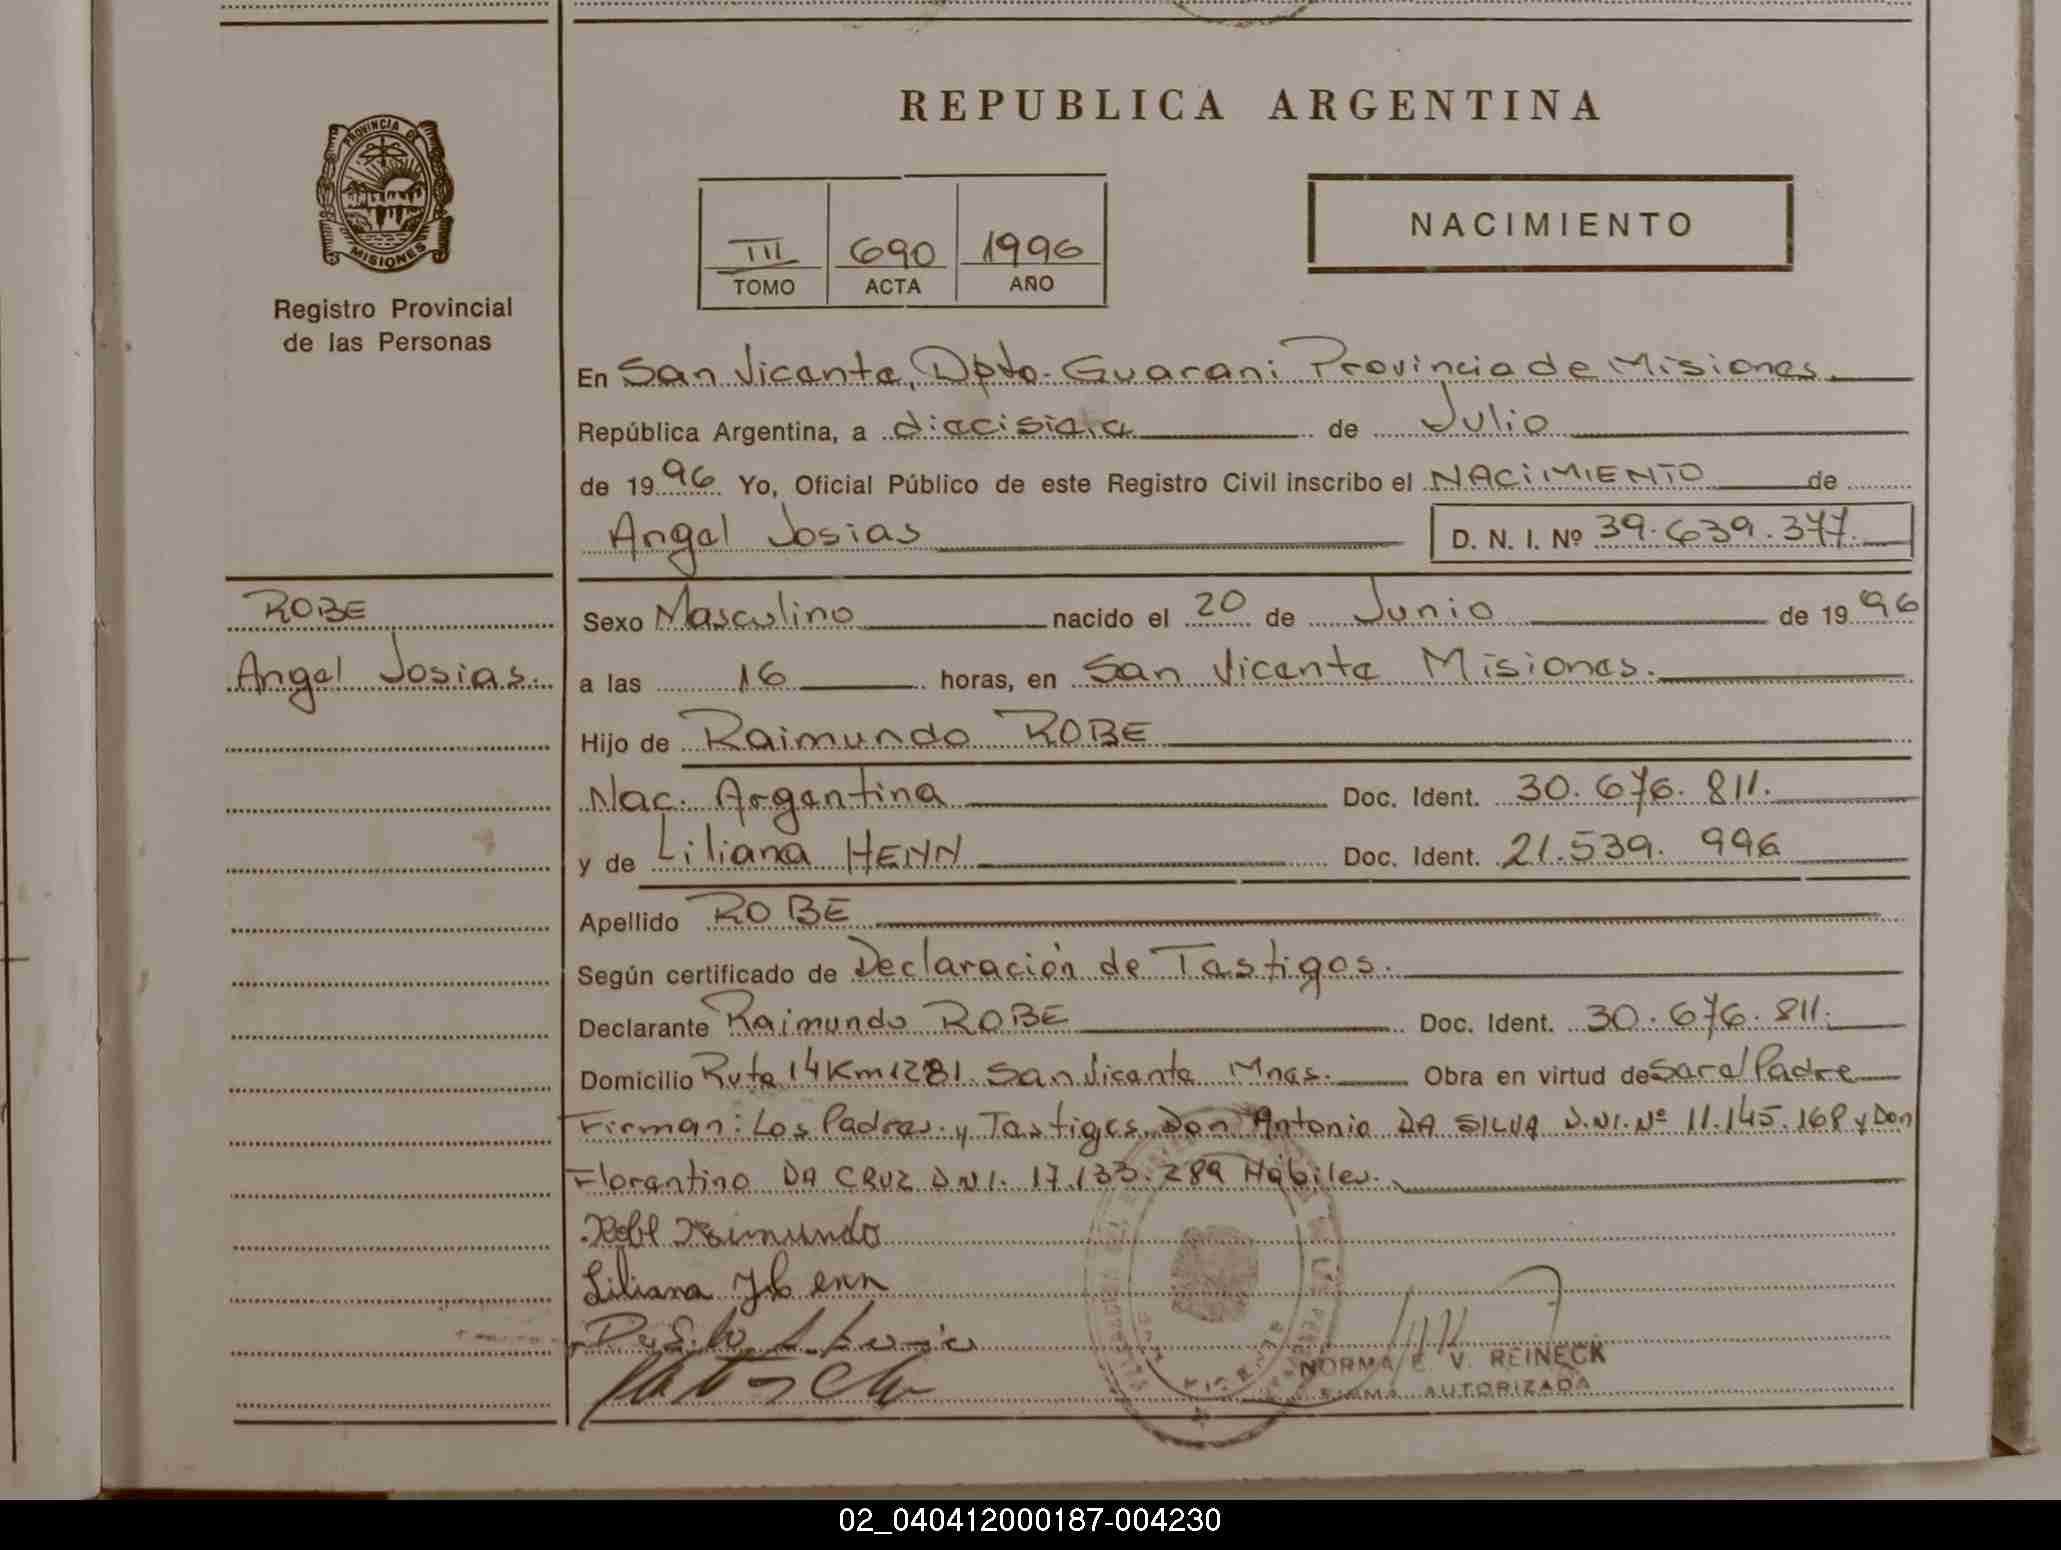 REPUBLICA ARGENTINA
PROVINCIA DE
MISIONES
Registro Provincial
de las Personas
III 690 1996
TOMO ACTA AÑO
NACIMIENTO
En San Vicente, Dpto. Guarani Provincia de Misiones.
República Argentina, a diecisiete de Julio
de 1996 Yo, Oficial Público de este Registro Civil inscribo el NACIMIENTO de
Angel Josias D. N. I. Nº 39.639.377.
ROBE
Angel Josias.
Sexo Masculino nacido el 20 de Junio de 1996
a las 16 horas, en San Vicente Misiones.
Hijo de Raimundo ROBE
Nac. Argentina Doc. Ident. 30.676.811.
y de Liliana HENN Doc. Ident. 21.539.996
Apellido ROBE
Según certificado de Declaración de Testigos.
Declarante Raimundo ROBE Doc. Ident. 30.676.811.
Domicilio Ruta 14 Km 1281 San Vicente Mnes. Obra en virtud de Ser el Padre
Firman: Los Padres y Testigos Don Antonio DA SILVA D.N.I. Nº 11.145.168 y Don
Florentino DA CRUZ D.N.I. 17.133.289 Hábiles.
Robe Raimundo
Liliana Henn
NORMA E. V. REINECK
FIRMA AUTORIZADA
02_040412000187-004230